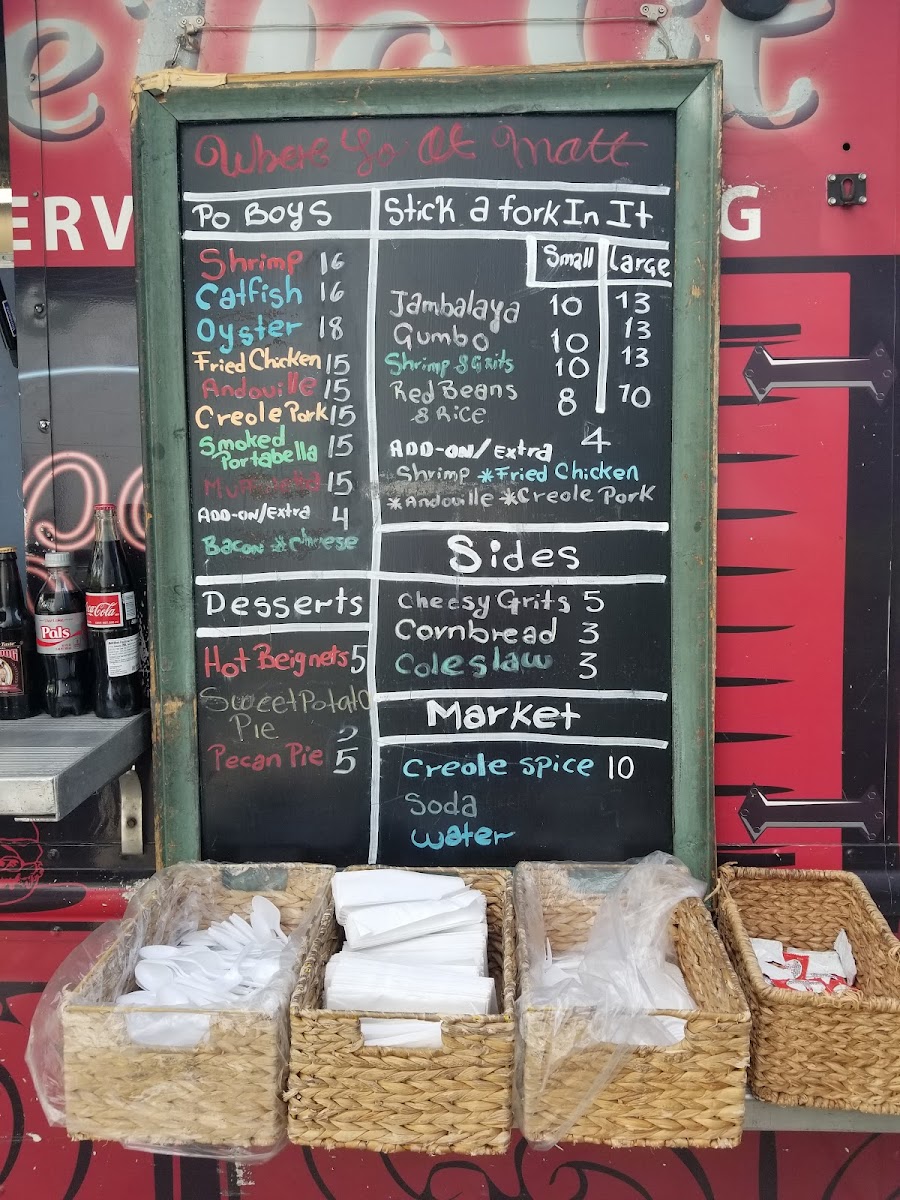 ERV
G
Where Ya At Matt
Po Boys
Shrimp 16
Catfish 16
Oyster 18
Fried Chicken 15
Andouille 15
Creole Pork 15
Smoked
Portabella 15
15
ADD-ON/Extra 4
Bacon *cheese
Desserts
Hot Beignets 5
Sweet Potato
Pie 5
Pecan Pie 5
Stick a fork In It
Small Large
Jambalaya 10 13
Gumbo 10 13
Shrimp & Grits 10 13
Red Beans
& Rice 8 10
ADD-ON/Extra 4
Shrimp *Fried Chicken
*Andouille *Creole Pork
Sides
Cheesy Grits 5
Cornbread 3
Coleslaw 3
Market
Creole spice 10
Soda
Water
Pals
Coca-Cola